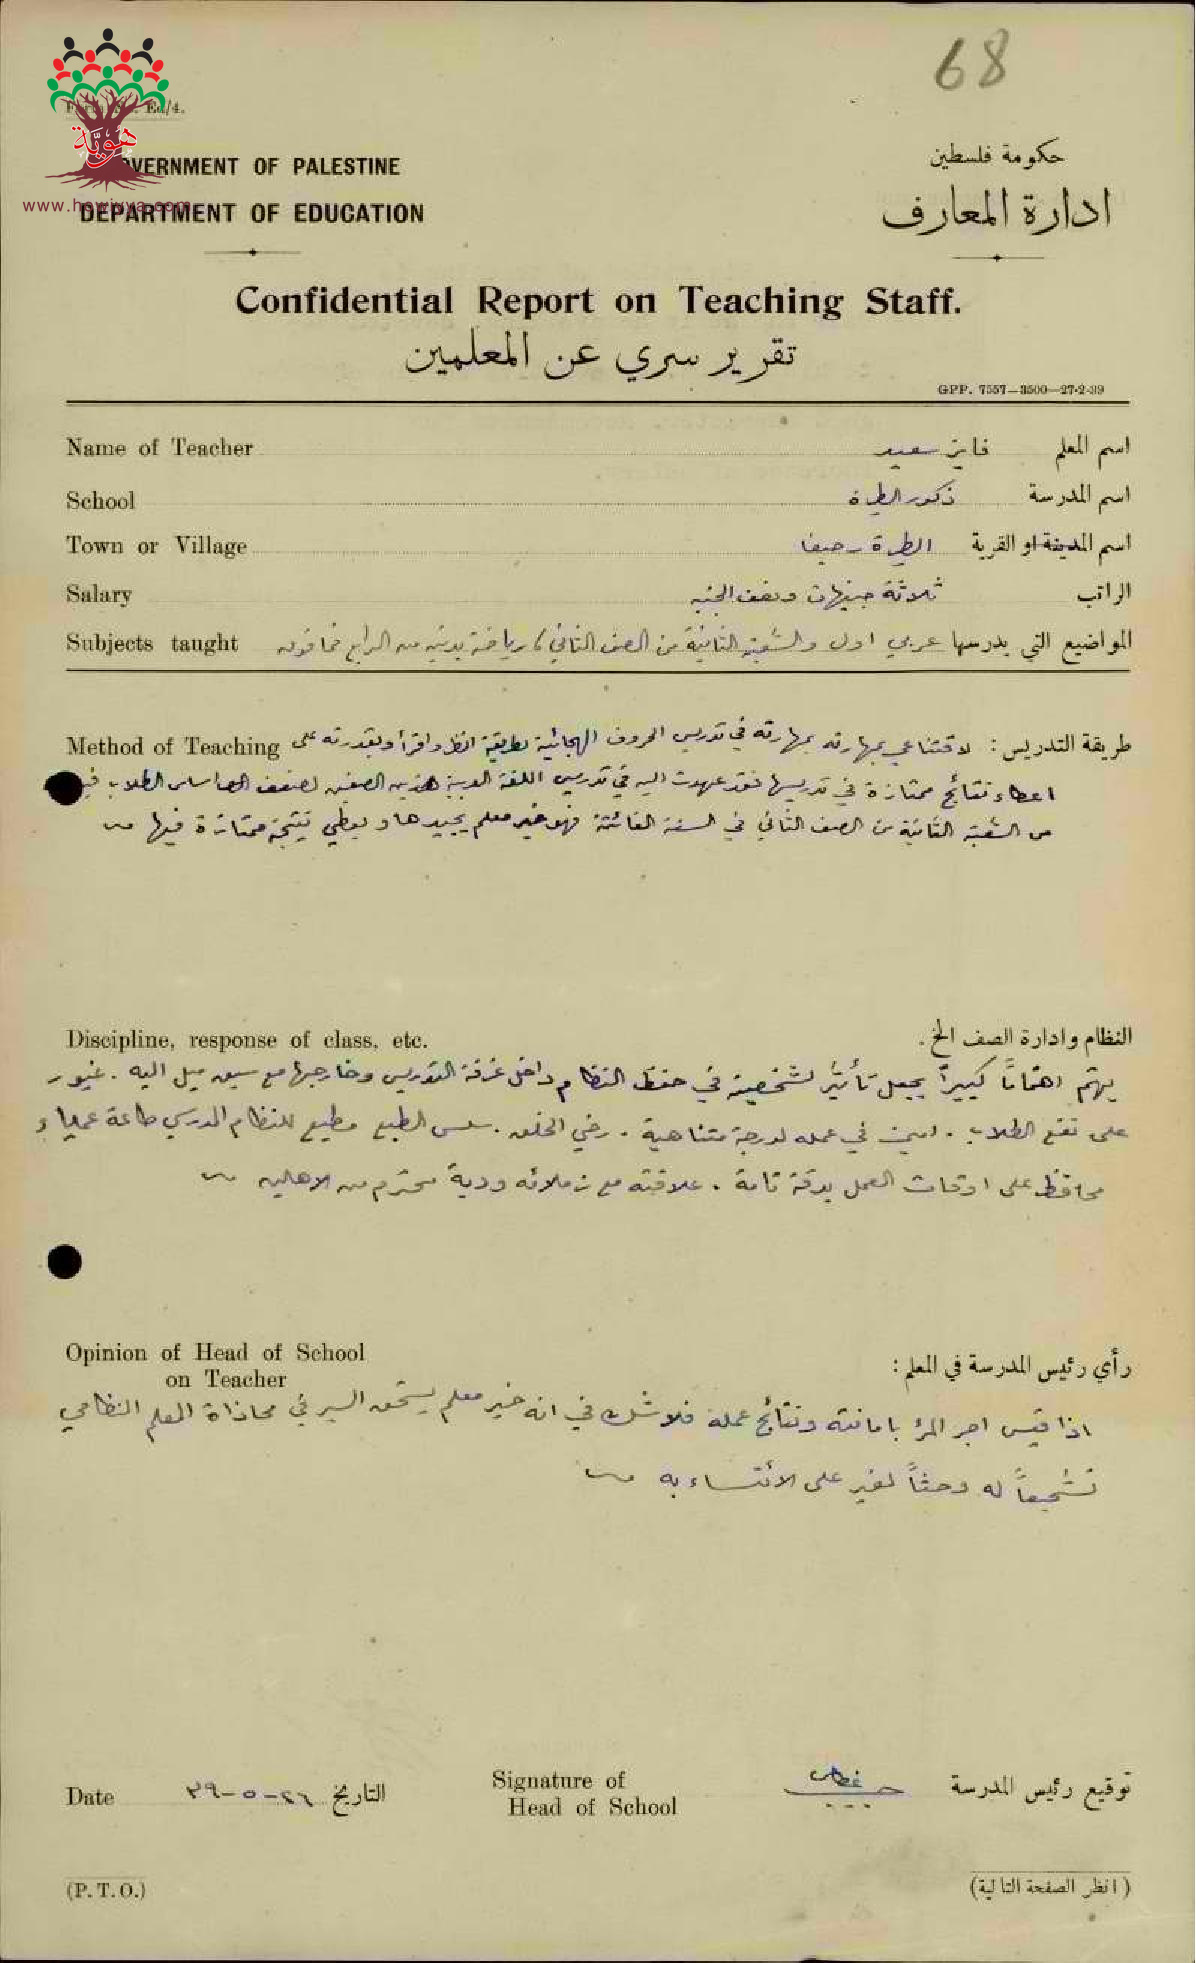 68
Ed/4.
هَوِيَّة
www.howiyya.com
GOVERNMENT OF PALESTINE
DEPARTMENT OF EDUCATION
حكومة فلسطين
ادارة المعارف
Confidential Report on Teaching Staff.
تقرير سري عن المعلمين
GPP. 7557—3500—27-2-39
Name of Teacher فايز سعيد اسم المعلم
School ذكور الطيرة اسم المدرسة
Town or Village الطيرة - حيفا اسم المدينة او القرية
Salary ثلاثة جنيهات ونصف الجنيه الراتب
Subjects taught المواضيع التي يدرسها عربي اول والشعبة الثانية من الصف الثاني / رياضة بدنية من الرابع فما فوق
Method of Teaching طريقة التدريس: لاقتناعي بمهارته بمهارته في تدريس الحروف الهجائية بطريقة انظر واقرأ وبقدرته على
اعطاء نتائج ممتازة في تدريسها فقد عهدت اليه في تدريس اللغة العربية هذين الصفين لضعف اساس الطلاب
من الشعبة الثانية من الصف الثاني في السنة الفائتة فهو خير معلم يجيدها ويعطي نتيجة ممتازة فيها
Discipline, response of class, etc. النظام وادارة الصف الخ.
يهتم اهتماماً كبيراً بجعل تأثير لشخصيته في حفظ النظام داخل غرفة التدريس وخارجها مع ميل اليه. غيور
على نفع الطلاب. امين في عمله لدرجة متناهية. رضي الخلق. سلس الطبع مطيع للنظام المدرسي طاعة عمياء و
محافظ على اوقات العمل بدقة تامة. علاقته مع زملائه ودية محترم من الاهالي
Opinion of Head of School
on Teacher
رأي رئيس المدرسة في المعلم:
اذا قيس اجر المرء بامانته ونتائج عمله فلا شك في انه خير معلم يستحق السير في محاذاة المعلم النظامي
تشجيعاً له وحثاً لغير على الائتساء به
Date ٢٦-٥-٣٩ التاريخ
Signature of
Head of School
حبيب توقيع رئيس المدرسة
(P.T.O.)
(انظر الصفحة التالية)